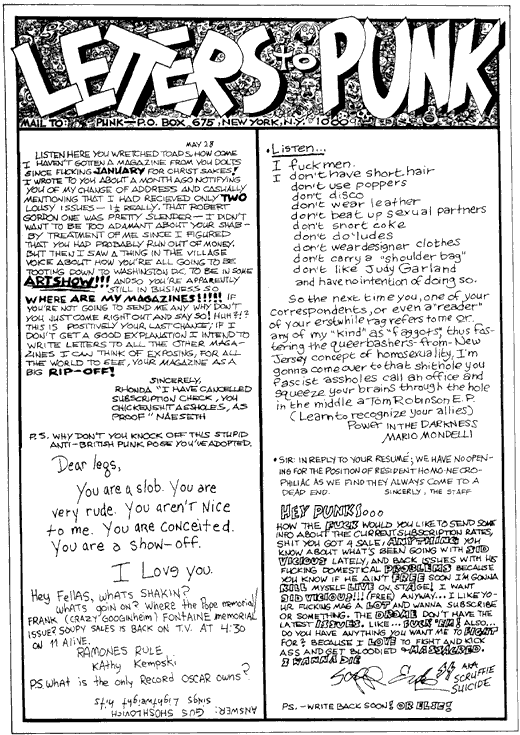 LETTERS to PUNK
MAIL TO: PUNK—P.O. BOX 675, NEW YORK, N.Y. 10010
MAY 28
LISTEN HERE YOU WRETCHED TOADS, HOW COME
I HAVEN'T GOTTEN A MAGAZINE FROM YOU DOLTS
SINCE FUCKING JANUARY FOR CHRIST SAKES!
I WROTE TO YOU ABOUT A MONTH AGO NOTIFYING
YOU OF MY CHANGE OF ADDRESS AND CASUALLY
MENTIONING THAT I HAD RECIEVED ONLY TWO
LOUSY ISSUES — 1½ REALLY. THAT ROBERT
GORDON ONE WAS PRETTY SLENDER — I DIDN'T
WANT TO BE TOO ADAMANT ABOUT YOUR SHAB-
BY TREATMENT OF ME SINCE I FIGURED
THAT YOU HAD PROBABLY RUN OUT OF MONEY.
BUT THEN I SAW A THING IN THE VILLAGE
VOICE ABOUT HOW YOU'RE ALL GOING TO BE
TOOTING DOWN TO WASHINGTON D.C. TO BE IN SOME
ARTSHOW!!! AND SO YOU'RE APPARENTLY
STILL IN BUSINESS SO
WHERE ARE MY MAGAZINES!!!!! IF
YOU'RE NOT GOING TO SEND ME ANY WHY DON'T
YOU JUST COME RIGHT OUT AND SAY SO! HUH?!?
THIS IS POSITIVELY YOUR LAST CHANCE, IF I
DON'T GET A GOOD EXPLANATION I INTEND TO
WRITE LETTERS TO ALL THE OTHER MAGA-
ZINES I CAN THINK OF EXPOSING, FOR ALL
THE WORLD TO SEE, YOUR MAGAZINE AS A
BIG RIP-OFF!
SINCERELY,
RHONDA "I HAVE CANCELLED
SUBSCRIPTION CHECK, YOU
CHICKENSHIT ASSHOLES, AS
PROOF" NAESETH
P.S. WHY DON'T YOU KNOCK OFF THIS STUPID
ANTI-BRITISH PUNK POSE YOU'VE ADOPTED.
Dear legs,
You are a slob. You are
very rude. You aren't nice
to me. You are conceited.
You are a show-off.
I Love you.
Hey Fellas, whats SHAKIN?
whats goin on? Where the Pope memorial/
FRANK (CRAZY 'GOOGINHEIM) FONTAINE MEMORIAL
ISSUE? SOUPY SALES IS BACK ON T.V. AT 4:30
ON 11 Alive.
RAMONES RULE,
KAthy Kempski
P.S. What is the only Record OSCAR owns?
ANSWER: GUS GHOSHLOVICH
sings Lightweight hits
• Listen...
I fuck men.
I don't have short hair
don't use poppers
don't disco
don't wear leather
don't beat up sexual partners
don't snort coke
don't do 'ludes
don't wear designer clothes
don't carry a "shoulder bag"
don't like Judy Garland
and have no intention of doing so.
So the next time you, one of your
correspondents, or even a reader
of your erstwhile rag refers to me or
any of my "kind" as "faggots", thus fos-
tering the queerbashers-from-New
Jersey concept of homosexuality, I'm
gonna come over to that shithole you
fascist assholes call an office and
squeeze your brains through the hole
in the middle a Tom Robinson E.P.
(Learn to recognize your allies)
Power in the DARKNESS
MARIO MONDELLI
• SIR: IN REPLY TO YOUR RESUMÉ; WE HAVE NO OPEN-
ING FOR THE POSITION OF RESIDENT HOMO-NECRO-
PHILIAC AS WE FIND THEY ALWAYS COME TO A
DEAD END. SINCERELY, THE STAFF
HEY PUNKS...
HOW THE FUCK WOULD YOU LIKE TO SEND SOME
INFO ABOUT THE CURRENT SUBSCRIPTION RATES,
SHIT YOU GOT 4 SALE, ANYTHING YOU
KNOW ABOUT WHAT'S BEEN GOING WITH SID
VICIOUS LATELY, AND BACK ISSUES WITH HIS
FUCKING DOMESTICAL PROBLEMS BECAUSE
YOU KNOW IF HE AIN'T FREE SOON I'M GONNA
KILL MYSELF LIVE ON STAGE! I WANT
SID VICIOUS!!! (FREE) ANYWAY... I LIKE YO-
UR FUCKING MAG A LOT AND WANNA SUBSCRIBE
OR SOMETHING. THE DRONE DON'T HAVE THE
LATEST ISSUES. LIKE... FUCK 'EM! ALSO...
DO YOU HAVE ANYTHING YOU WANT ME TO FIGHT
FOR? BECAUSE I LOVE TO FIGHT AND KICK
ASS AND GET BLOODIED & MASSACRED.
I WANNA DIE
AKA
SCRUFFIE
SUICIDE
PS. — WRITE BACK SOON! OR ELSE!